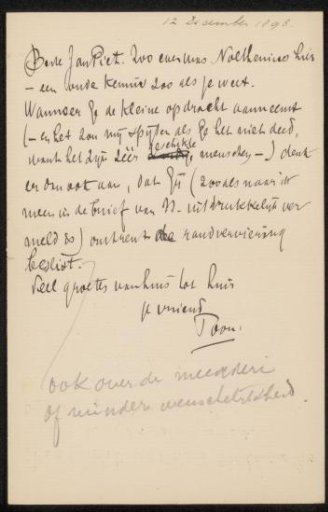 12 December 1898.
Beste Jan Piet. Zoo even was Nolthenius hier
- een oude kennis zoo als je weet.
Wanneer ge de kleine opdracht aanneemt
(- en het zou mij spijten als ge het niet deed,
want het zijn zéér geschikte menschen -) denk
er om ook aan, dat gij (zooals naar ik
meen in de brief van N. uitdrukkelijk ver
meld is) omtrent de randversiering
beslist.
Veel groeten van huis tot huis
je vriend
Toon.
ook over de meerdere
of mindere wenschelijkheid.